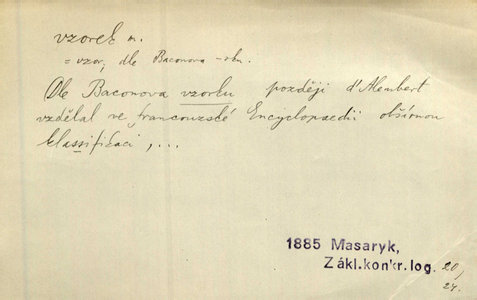 vzorek m.
= vzor, dle Baconova -rku.
Dle Baconova vzorku později d'Alembert
vzdělal ve francouzské Encyclopaedii obšírnou
klassifikaci, ...
1885 Masaryk,
Zákl.konkr.log. 20,
24.